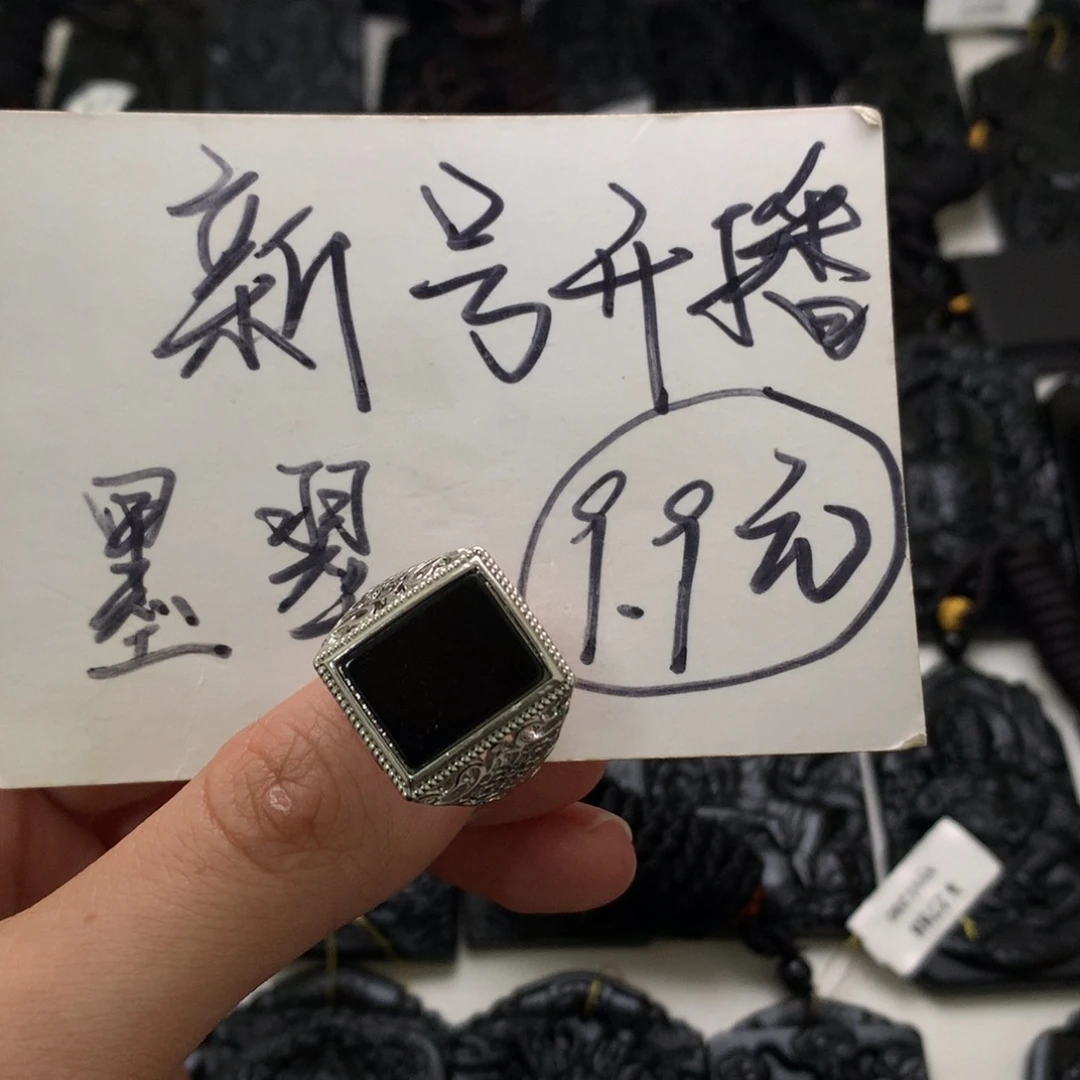 新号开播
墨翠
9.9元